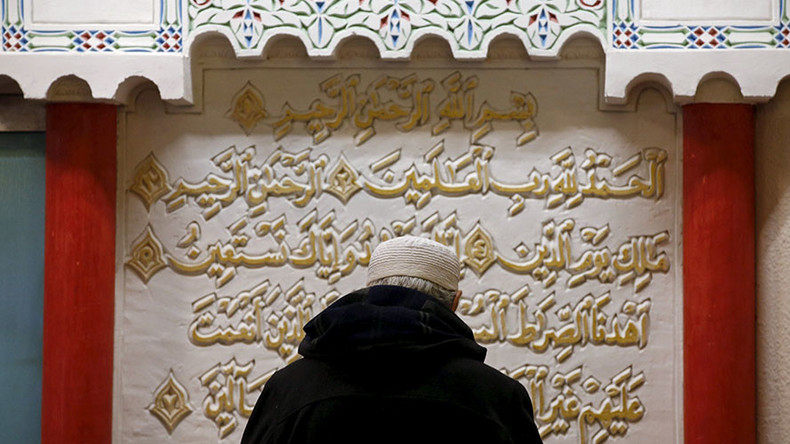 بِسْمِ اللَّهِ الرَّحْمَٰنِ الرَّحِيمِ ١
الْحَمْدُ لِلَّهِ رَبِّ الْعَالَمِينَ ٢ الرَّحْمَٰنِ الرَّحِيمِ ٣
مَالِكِ يَوْمِ الدِّينِ ٤ إِيَّاكَ وَإِيَّاكَ نَسْتَعِينُ ٥
اهْدِنَا الصِّرَاطَ الَّذِينَ أَنْعَمْتَ
عَلَيْهِمْ غَيْرِ ٧